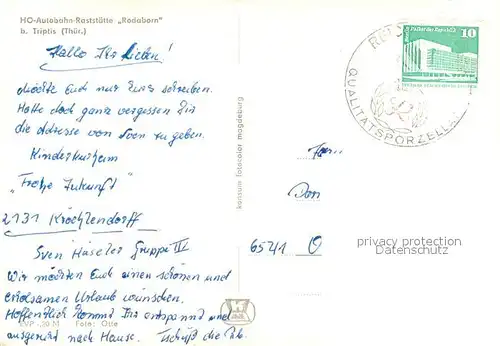 HO-Autobahn-Raststätte „Rodaborn"
b. Triptis (Thür.)
Hallo Ihr Lieben!
möchte Euch nur kurz schreiben.
Hatte doch ganz vergessen Euch
die Adresse von Sven zu geben.
Kinderkurheim
„Frohe Zukunft"
2131 Kröchlendorff
Sven Häseler Gruppe IV
Wir möchten Euch einen schönen und
erholsamen Urlaub wünschen.
Hoffentlich kommt Ihr entspannt und
ausgeruht nach Hause. Tschüß die
EVP -,20 M Foto: Otte
konsum fotocolor magdeburg
Palast der Republik
10
QUALITÄTSPORZELLAN
Fam.
6541
privacy protection
Datenschutz